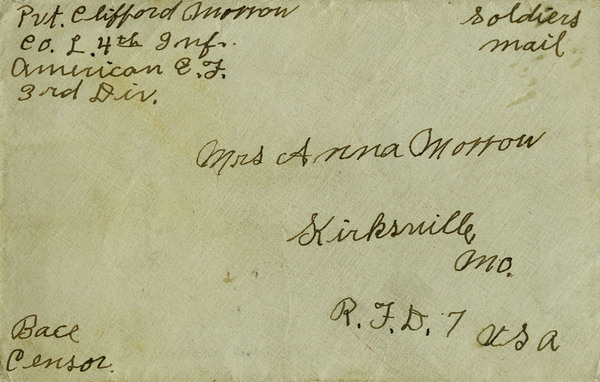 Pvt. Clifford Morrow
Co. L. 4th Inf.
American E.F.
3rd Div.
Soldiers
mail
Mrs Anna Morrow
Kirksville,
Mo.
R.F.D. 7
USA
Bace
Censor.